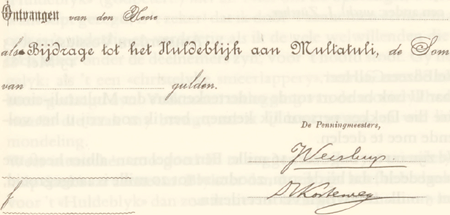 Ontvangen van den Heer
als Bijdrage tot het Huldeblijk aan Multatuli, de Som
van gulden.
De Penningmeesters,
J Versluys
D J Korteweg
f